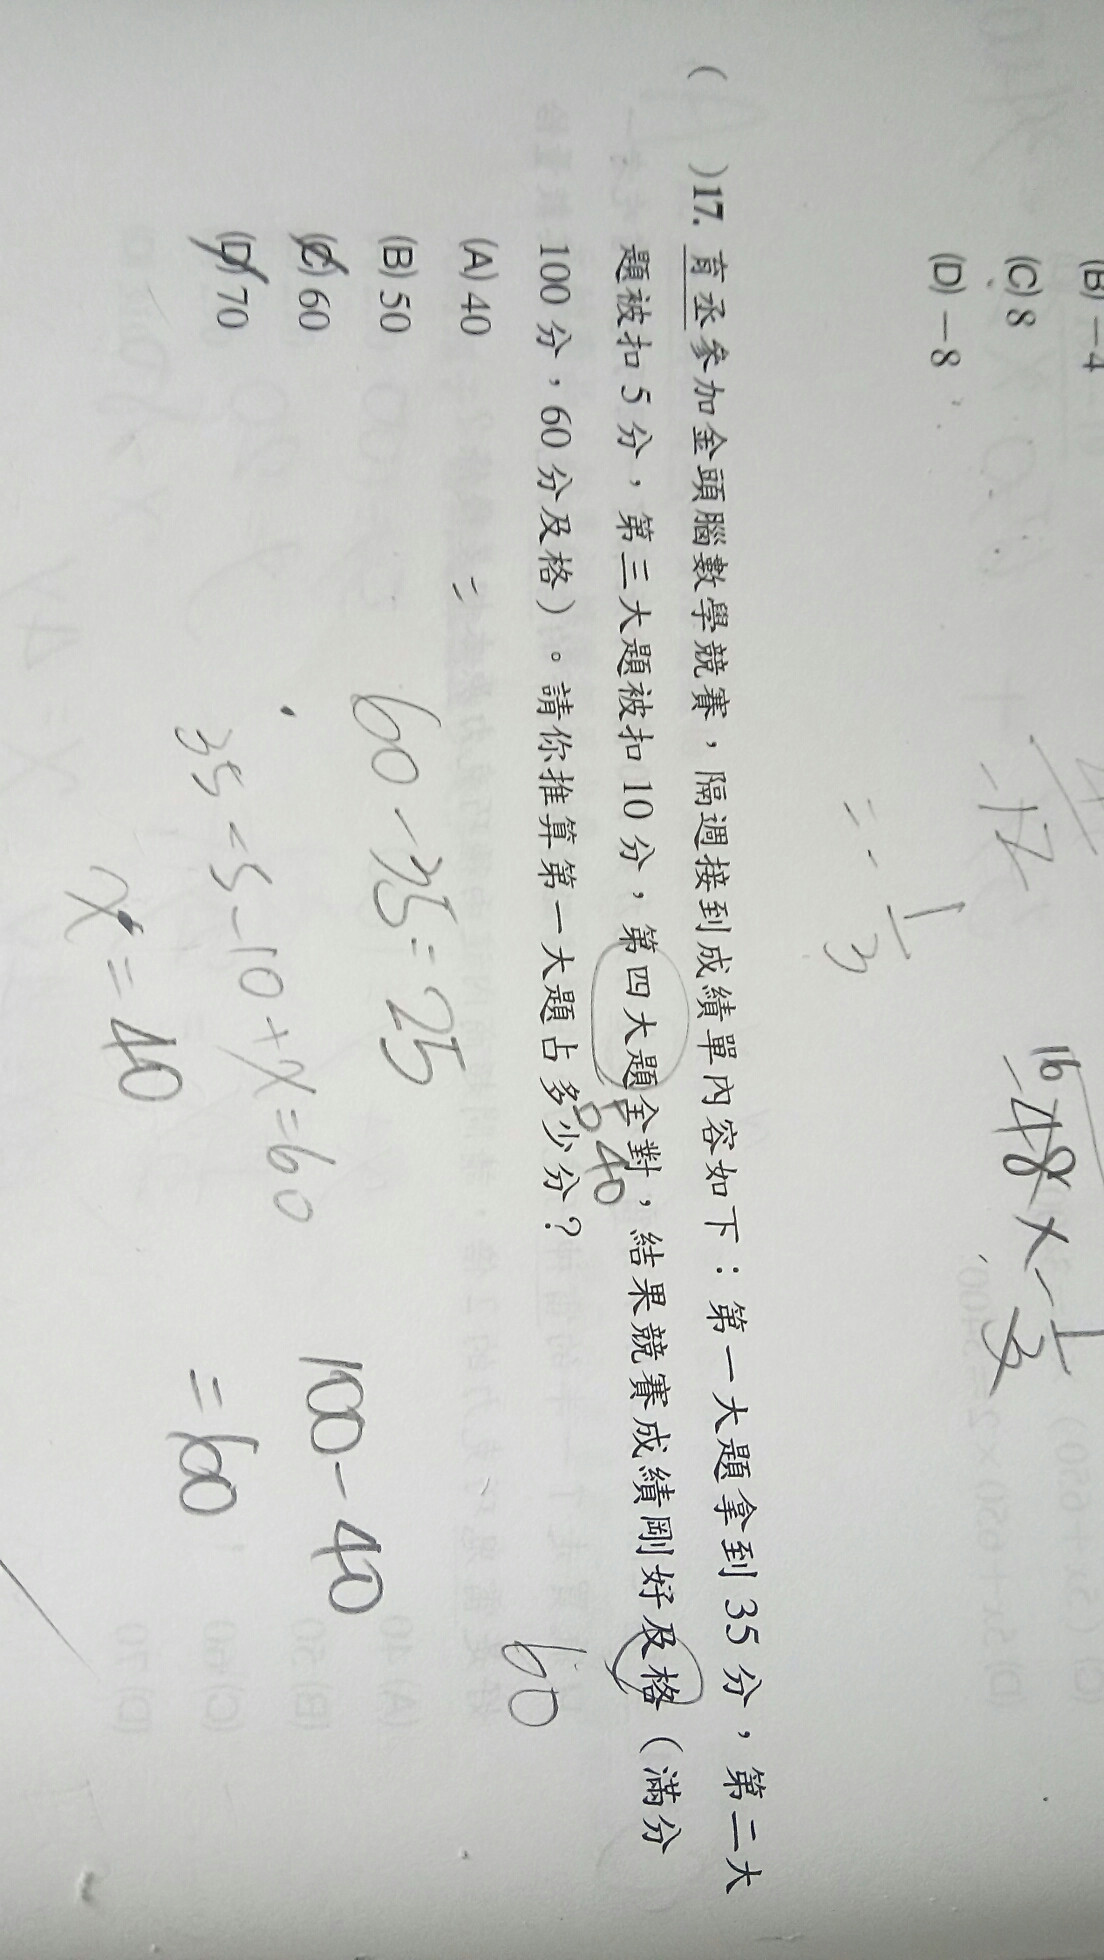 (B)－4
(C) 8
(D)－8
16
－48×－1/3
－12
＝－1/3
(　)17. 育丞參加金頭腦數學競賽，隔週接到成績單內容如下：第一大題拿到 35 分，第二大
題被扣 5 分，第三大題被扣 10 分，第四大題全對，結果競賽成績剛好及格（滿分
40
60
100 分，60 分及格）。請你推算第一大題占多少分？
(A) 40
(B) 50
(C) 60
(D) 70
=
60－35=25
35－5－10+x=60
x=40
100－40
=60